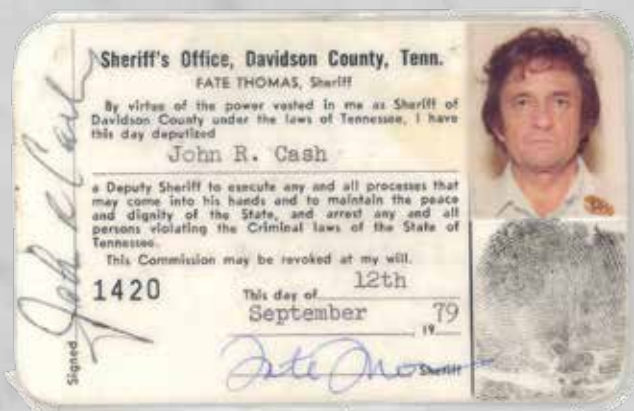 Sheriff's Office, Davidson County, Tenn.
FATE THOMAS, Sheriff
By virtue of the power vested in me as Sheriff of
Davidson County under the laws of Tennessee, I have
this day deputized
John R. Cash
a Deputy Sheriff to execute any and all processes that
may come into his hands and to maintain the peace
and dignity of the State, and arrest any and all
persons violating the Criminal laws of the State of
Tennessee.
This Commission may be revoked at my will.
1420
This day of 12th
September 79
19
Fate Thomas
Sheriff
Signed John R Cash